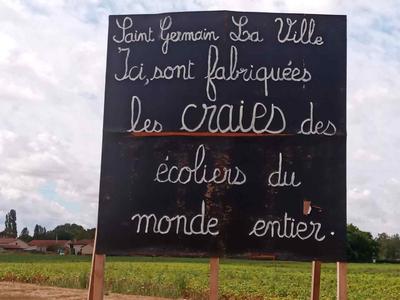 Saint Germain La Ville
Ici, sont fabriquées
les craies des
écoliers du
monde entier.